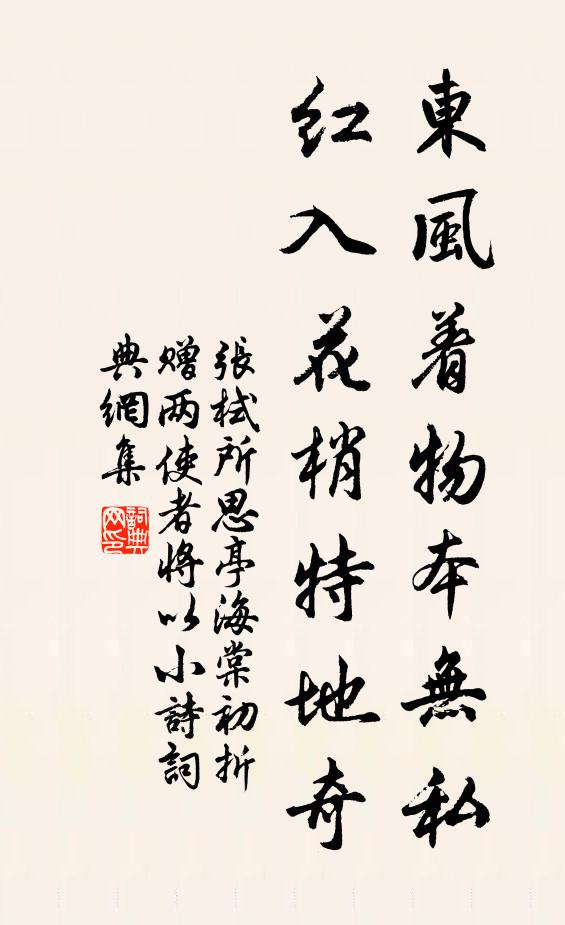 東風着物本無私
紅入花梢特地奇
張栻所思亭海棠初折
赠两使者將以小詩詞
典網集
詞典网印